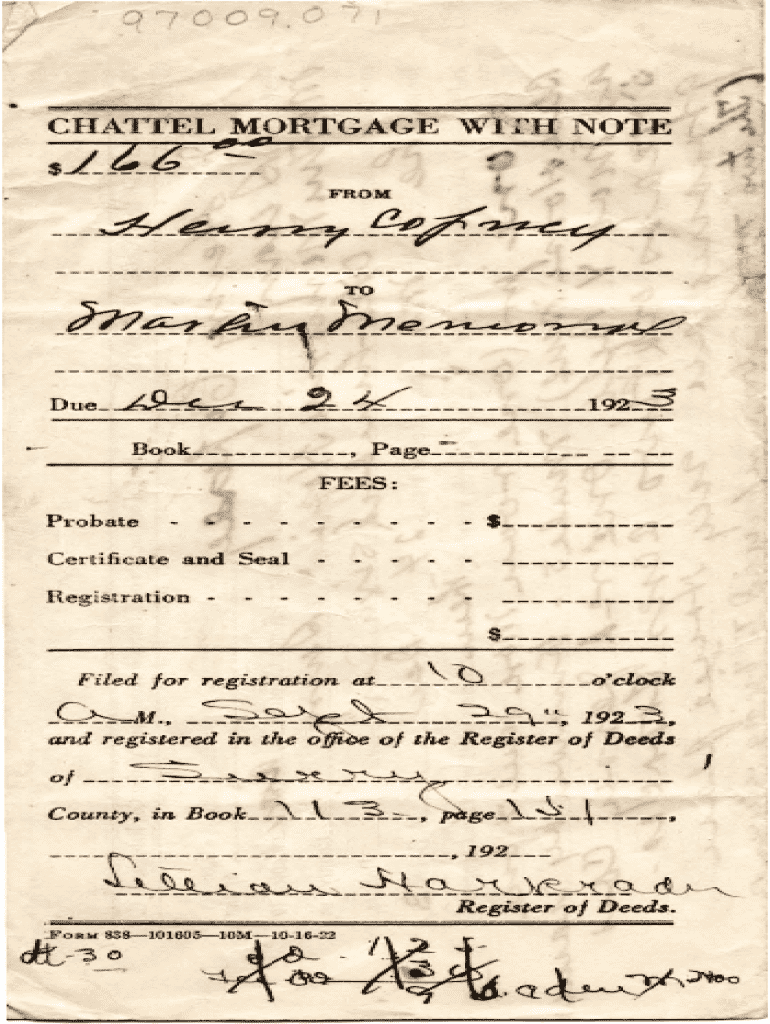 97009.071
CHATTEL MORTGAGE WITH NOTE
$166.00
FROM
Henry Cofney
TO
Martin Memorial
Due Dec 24 1923
Book , Page
FEES:
Probate - - - - - - - - - $
Certificate and Seal - - - - -
Registration - - - - - - - -
$
Filed for registration at 10 o'clock
A M., Sept 29", 1923,
and registered in the office of the Register of Deeds
of Surry
County, in Book 113, page 151,
, 192
Lillian Harkrader
Register of Deeds.
FORM 838—101605—10M—10-16-22